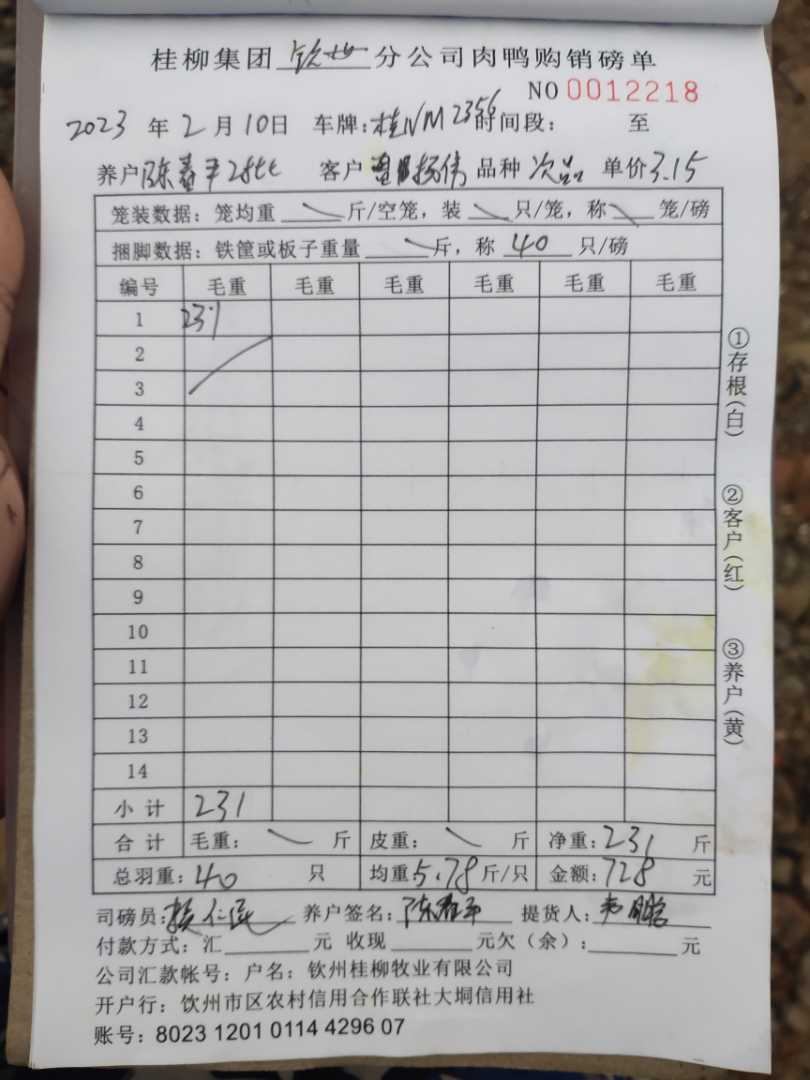 桂柳集团 钦州 分公司肉鸭购销磅单
NO 0012218
2023 年 2 月 10日 车牌：桂NM2356 时间段： 至
养户 陈春平 28 客户 杨伟 品种 次品 单价 3.15
笼装数据：笼均重 斤/空笼，装 只/笼，称 笼/磅
捆脚数据：铁筐或板子重量 斤，称 40 只/磅
编号 毛重 毛重 毛重 毛重 毛重 毛重
1 231
2
3
4
5
6
7
8
9
10
11
12
13
14
小计 231
合计 毛重： 斤 皮重： 斤 净重：231 斤
总羽重：40 只 均重 5.78 斤/只 金额：728 元
司磅员： 养户签名：陈春平 提货人：
付款方式：汇 元 收现 元欠（余）： 元
公司汇款帐号：户名：钦州桂柳牧业有限公司
开户行：钦州市区农村信用合作联社大垌信用社
账号：8023 1201 0114 4296 07
①存根（白）
②客户（红）
③养户（黄）